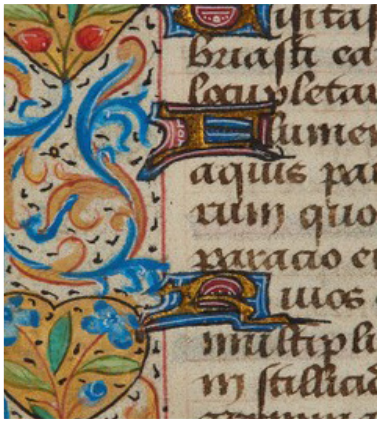 Visitas
briasti ea
locupleta
Flumen
aquis pa
rum quo
paracio e
Riuos
multipli
in stillicid